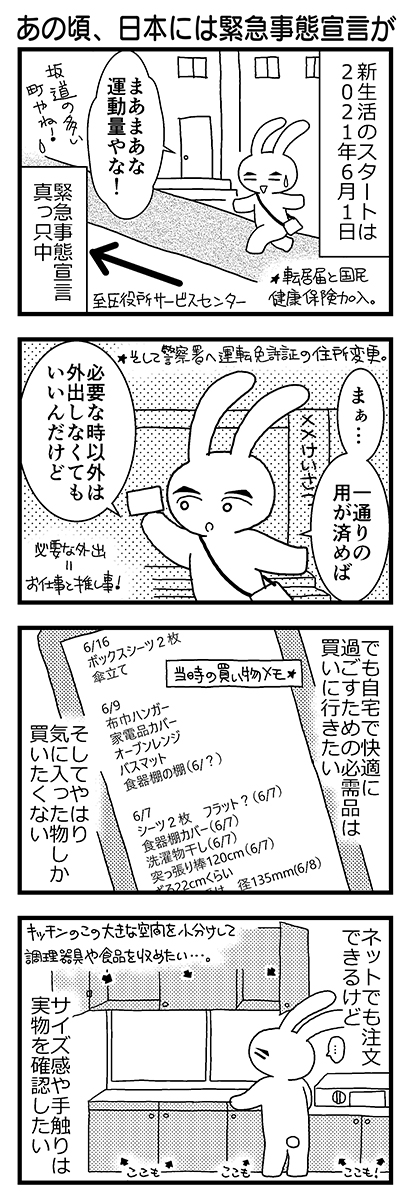 あの頃、日本には緊急事態宣言が
新生活のスタートは
2021年6月1日
まあまあな
運動量やな！
坂道の多い
町やね！
緊急事態宣言
真っ只中
至区役所サービスセンター
★転居届と国民
健康保険加入。
★そして警察署へ運転免許証の住所変更。
まぁ…
一通りの
用が済めば
××けいさ
必要な時以外は
外出しなくても
いいんだけど
必要な外出
＝
お仕事と推し事！
でも自宅で快適に
過ごすための必需品は
買いに行きたい
当時の買い物メモ★
6/16
ボックスシーツ2枚
傘立て
6/9
布巾ハンガー
家電品カバー
オーブンレンジ
バスマット
食器棚の棚(6/?)
6/7
シーツ2枚　フラット？(6/7)
食器棚カバー(6/7)
洗濯物干し(6/7)
突っ張り棒120cm(6/7)
ざる22cmくらい
径135mm(6/8)
そしてやはり
気に入った物しか
買いたくない
ネットでも注文
できるけど
キッチンのこの大きな空間を小分けして
調理器具や食品を収めたい…。
…
サイズ感や手触りは
実物を確認したい
ここも
ここも
ここも！